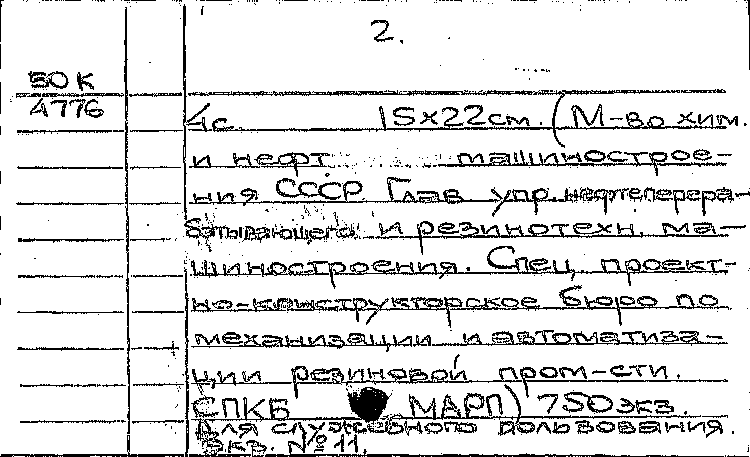 2.
50К
4776
4с. 15х22см. (М-во хим.
и нефт. машинострое-
ния СССР Глав. упр. нефтеперера-
батывающего и резинотехн. ма-
шиностроения. Спец. проект-
но-конструкторское бюро по
механизации и автоматиза-
ции резиновой пром-сти.
СПКБ МАРП) 750экз.
Для служебного пользования.
Экз. №11.